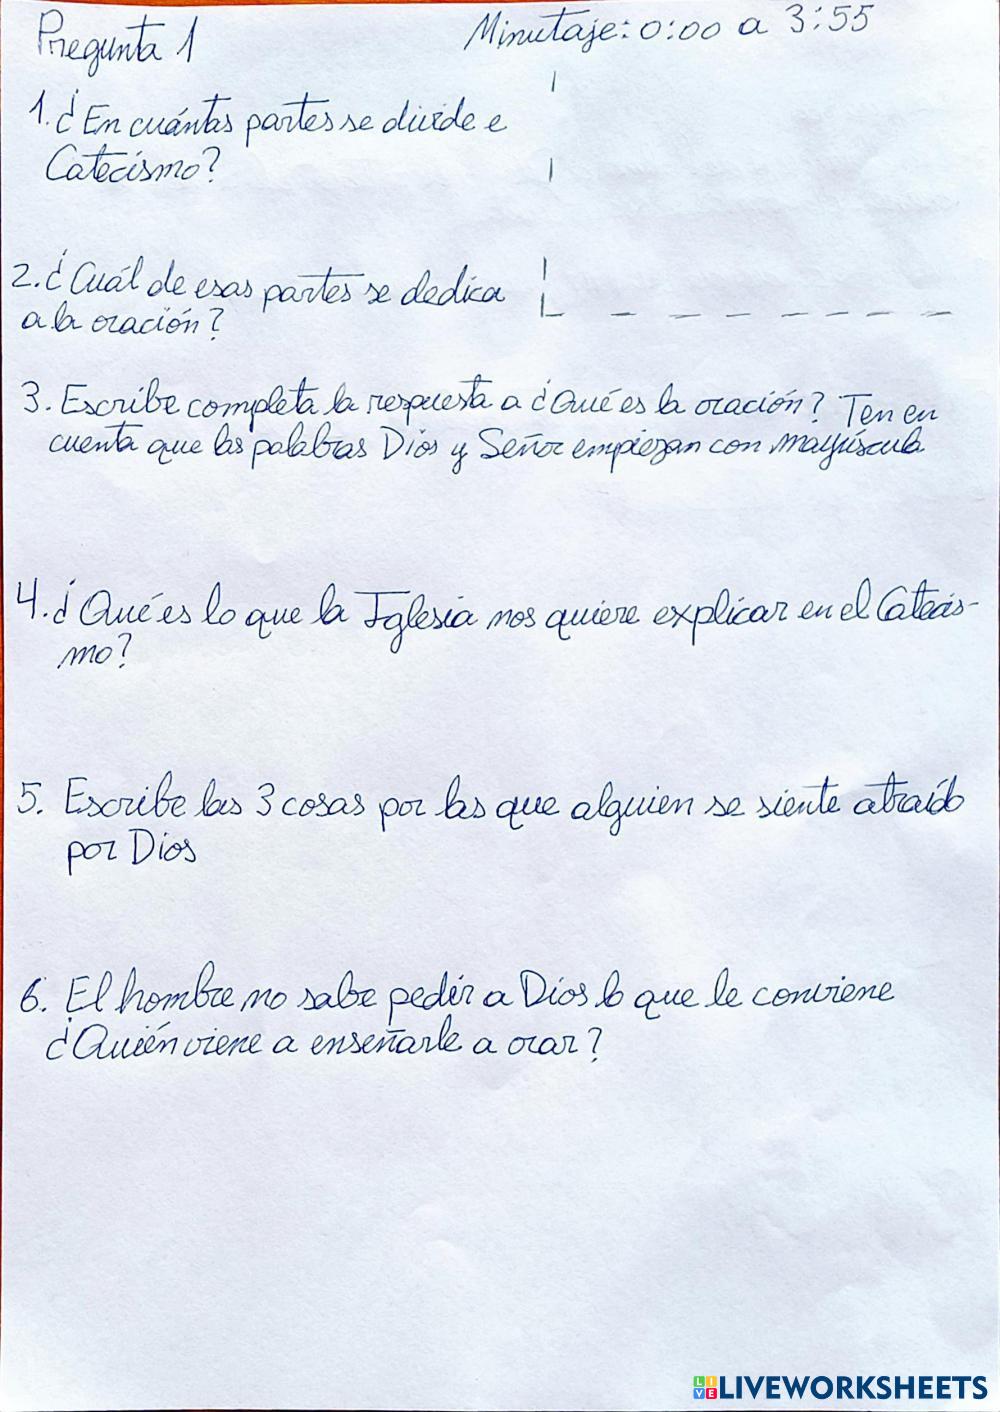 Pregunta 1
Minutaje: 0:00 a 3:55
1. ¿En cuántas partes se divide e
Catecismo?
2. ¿Cuál de esas partes se dedica
a la oración?
3. Escribe completa la respuesta a ¿Qué es la oración? Ten en
cuenta que las palabras Dios y Señor empiezan con mayúscula
4. ¿Qué es lo que la Iglesia nos quiere explicar en el Catecis-
mo?
5. Escribe las 3 cosas por las que alguien se siente atraído
por Dios
6. El hombre no sabe pedir a Dios lo que le conviene
¿Quién viene a enseñarle a orar?
LIVEWORKSHEETS